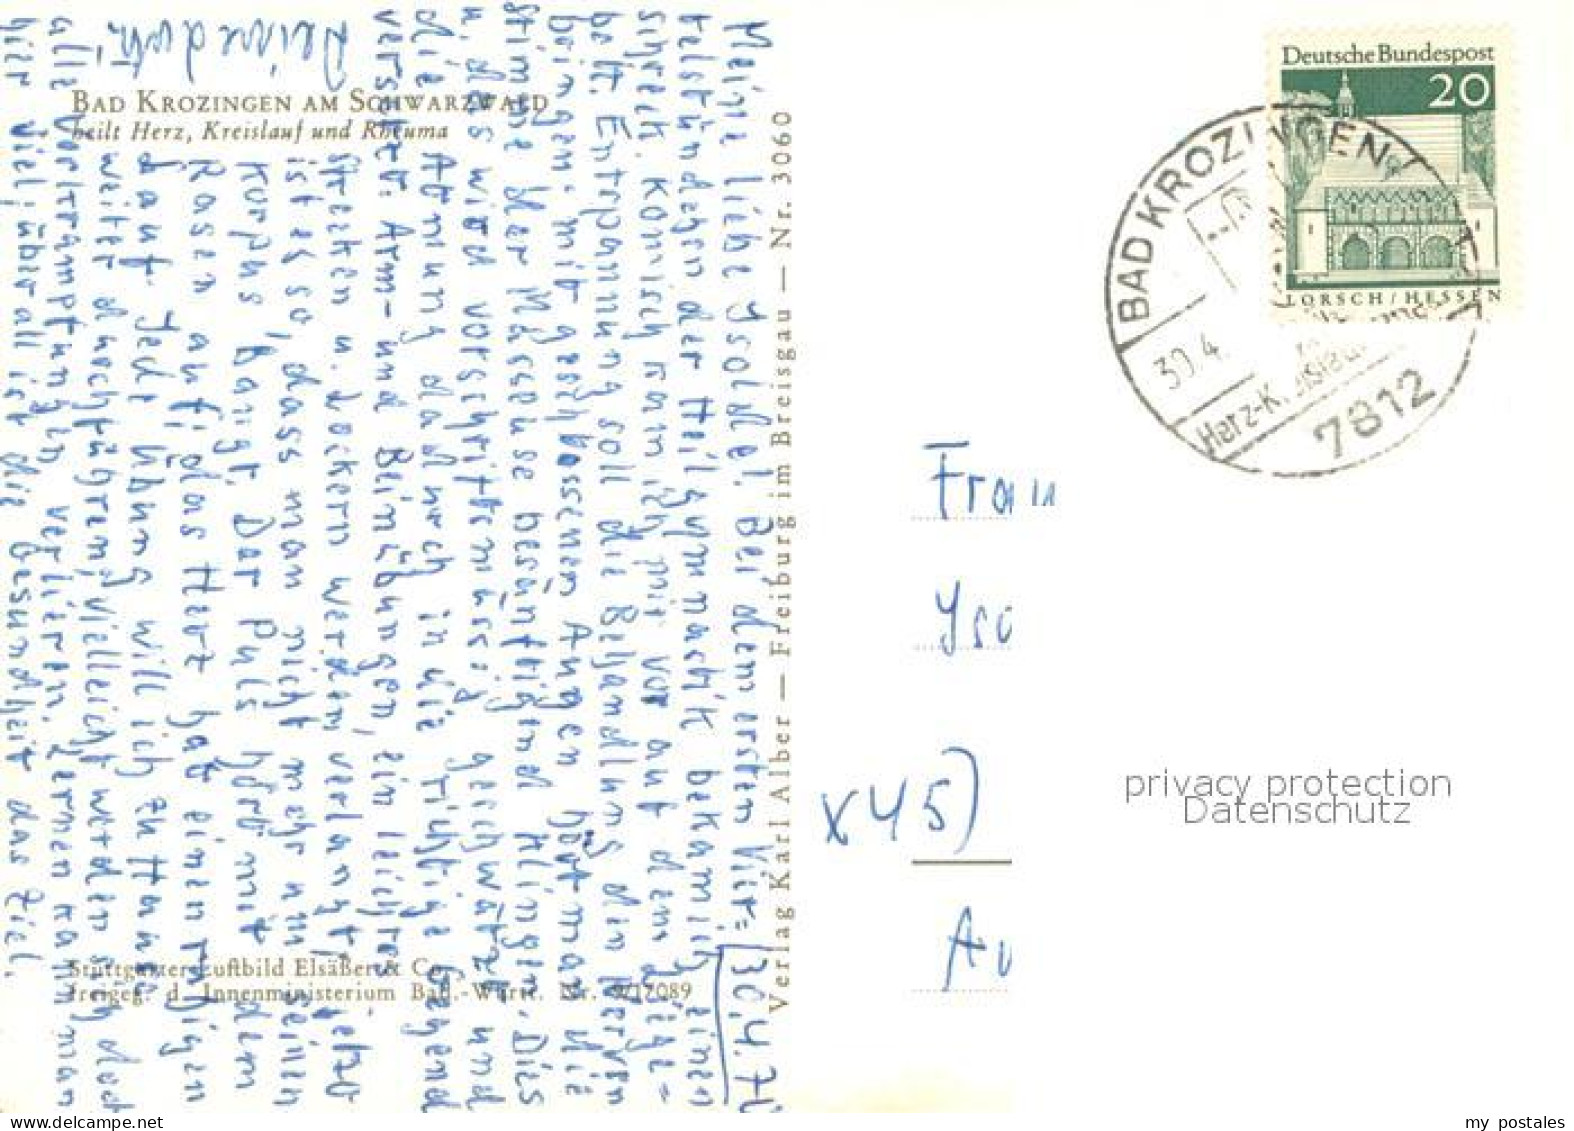 BAD KROZINGEN AM SCHWARZWALD
heilt Herz, Kreislauf und Rheuma
Meine liebe Ysolde! Bei dem ersten Vier= 30.4.70
telstündchen der Heilgymnastik bekam ich einen
Schreck. Komisch kam ich mir vor auf dem Liege=
bett. Entspannung soll die Behandlung den Nerven
bringen: mit geschlossenen Augen hört man die
Stimme der Masseuse besänftigend klingen. Dies
u. das wird vorschriftsmässig geschwätzt und
die Atmung dadurch in die richtige Gegend
versetzt. Arm- und Beinübungen, ein leichtes
Strecken u. Lockern werden verlangt, jetzt
ist es so, dass man nicht mehr um seinen
Korpus bangt. Der Puls hört mit dem
Rasen auf, das Herz hat einen ruhigen
Lauf. Jede Übung will ich zu Hause
weiter durchführen, vielleicht werden sich doch
alle Verkrampfungen verlieren. Lernen kann man
hier viel, überall ist die Gesundheit das Ziel.
Stuttgarter Luftbild Elsäßer & Co.
Freigeg. d. Innenministerium Bad.-Württ. Nr. 9/17089
Verlag Karl Alber — Freiburg im Breisgau — Nr. 3060
Deutsche Bundespost
20
LORSCH/HESSEN
BAD KROZINGEN
30.4.
Herz-Kreislauf
7812
Frau
Yso
x45)
privacy protection
Datenschutz
my postales
Neu en www.todocoleccion.net